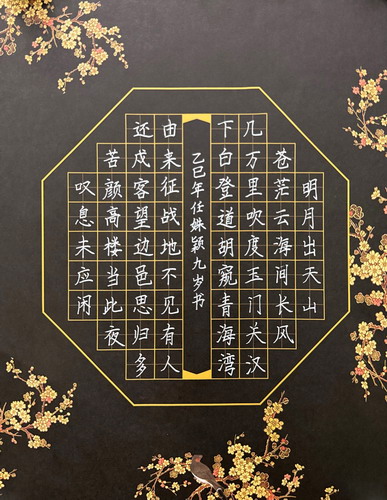 明月出天山
苍茫云海间长风
几万里吹度玉门关汉
下白登道胡窥青海湾
乙巳年任姝颖九岁书
由来征战地不见有人
还戍客望边邑思归多
苦颜高楼当此夜
叹息未应闲